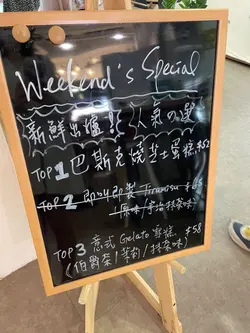 Weekend's Special
新鮮出爐 人氣の選
TOP 1 巴斯克燒芝士蛋糕 $52
TOP 2 即叫即製 Tiramisu $65
(原味/宇治抹茶味)
TOP 3 意式 Gelato 雪糕 $58
(伯爵茶/茉莉/抹茶味)